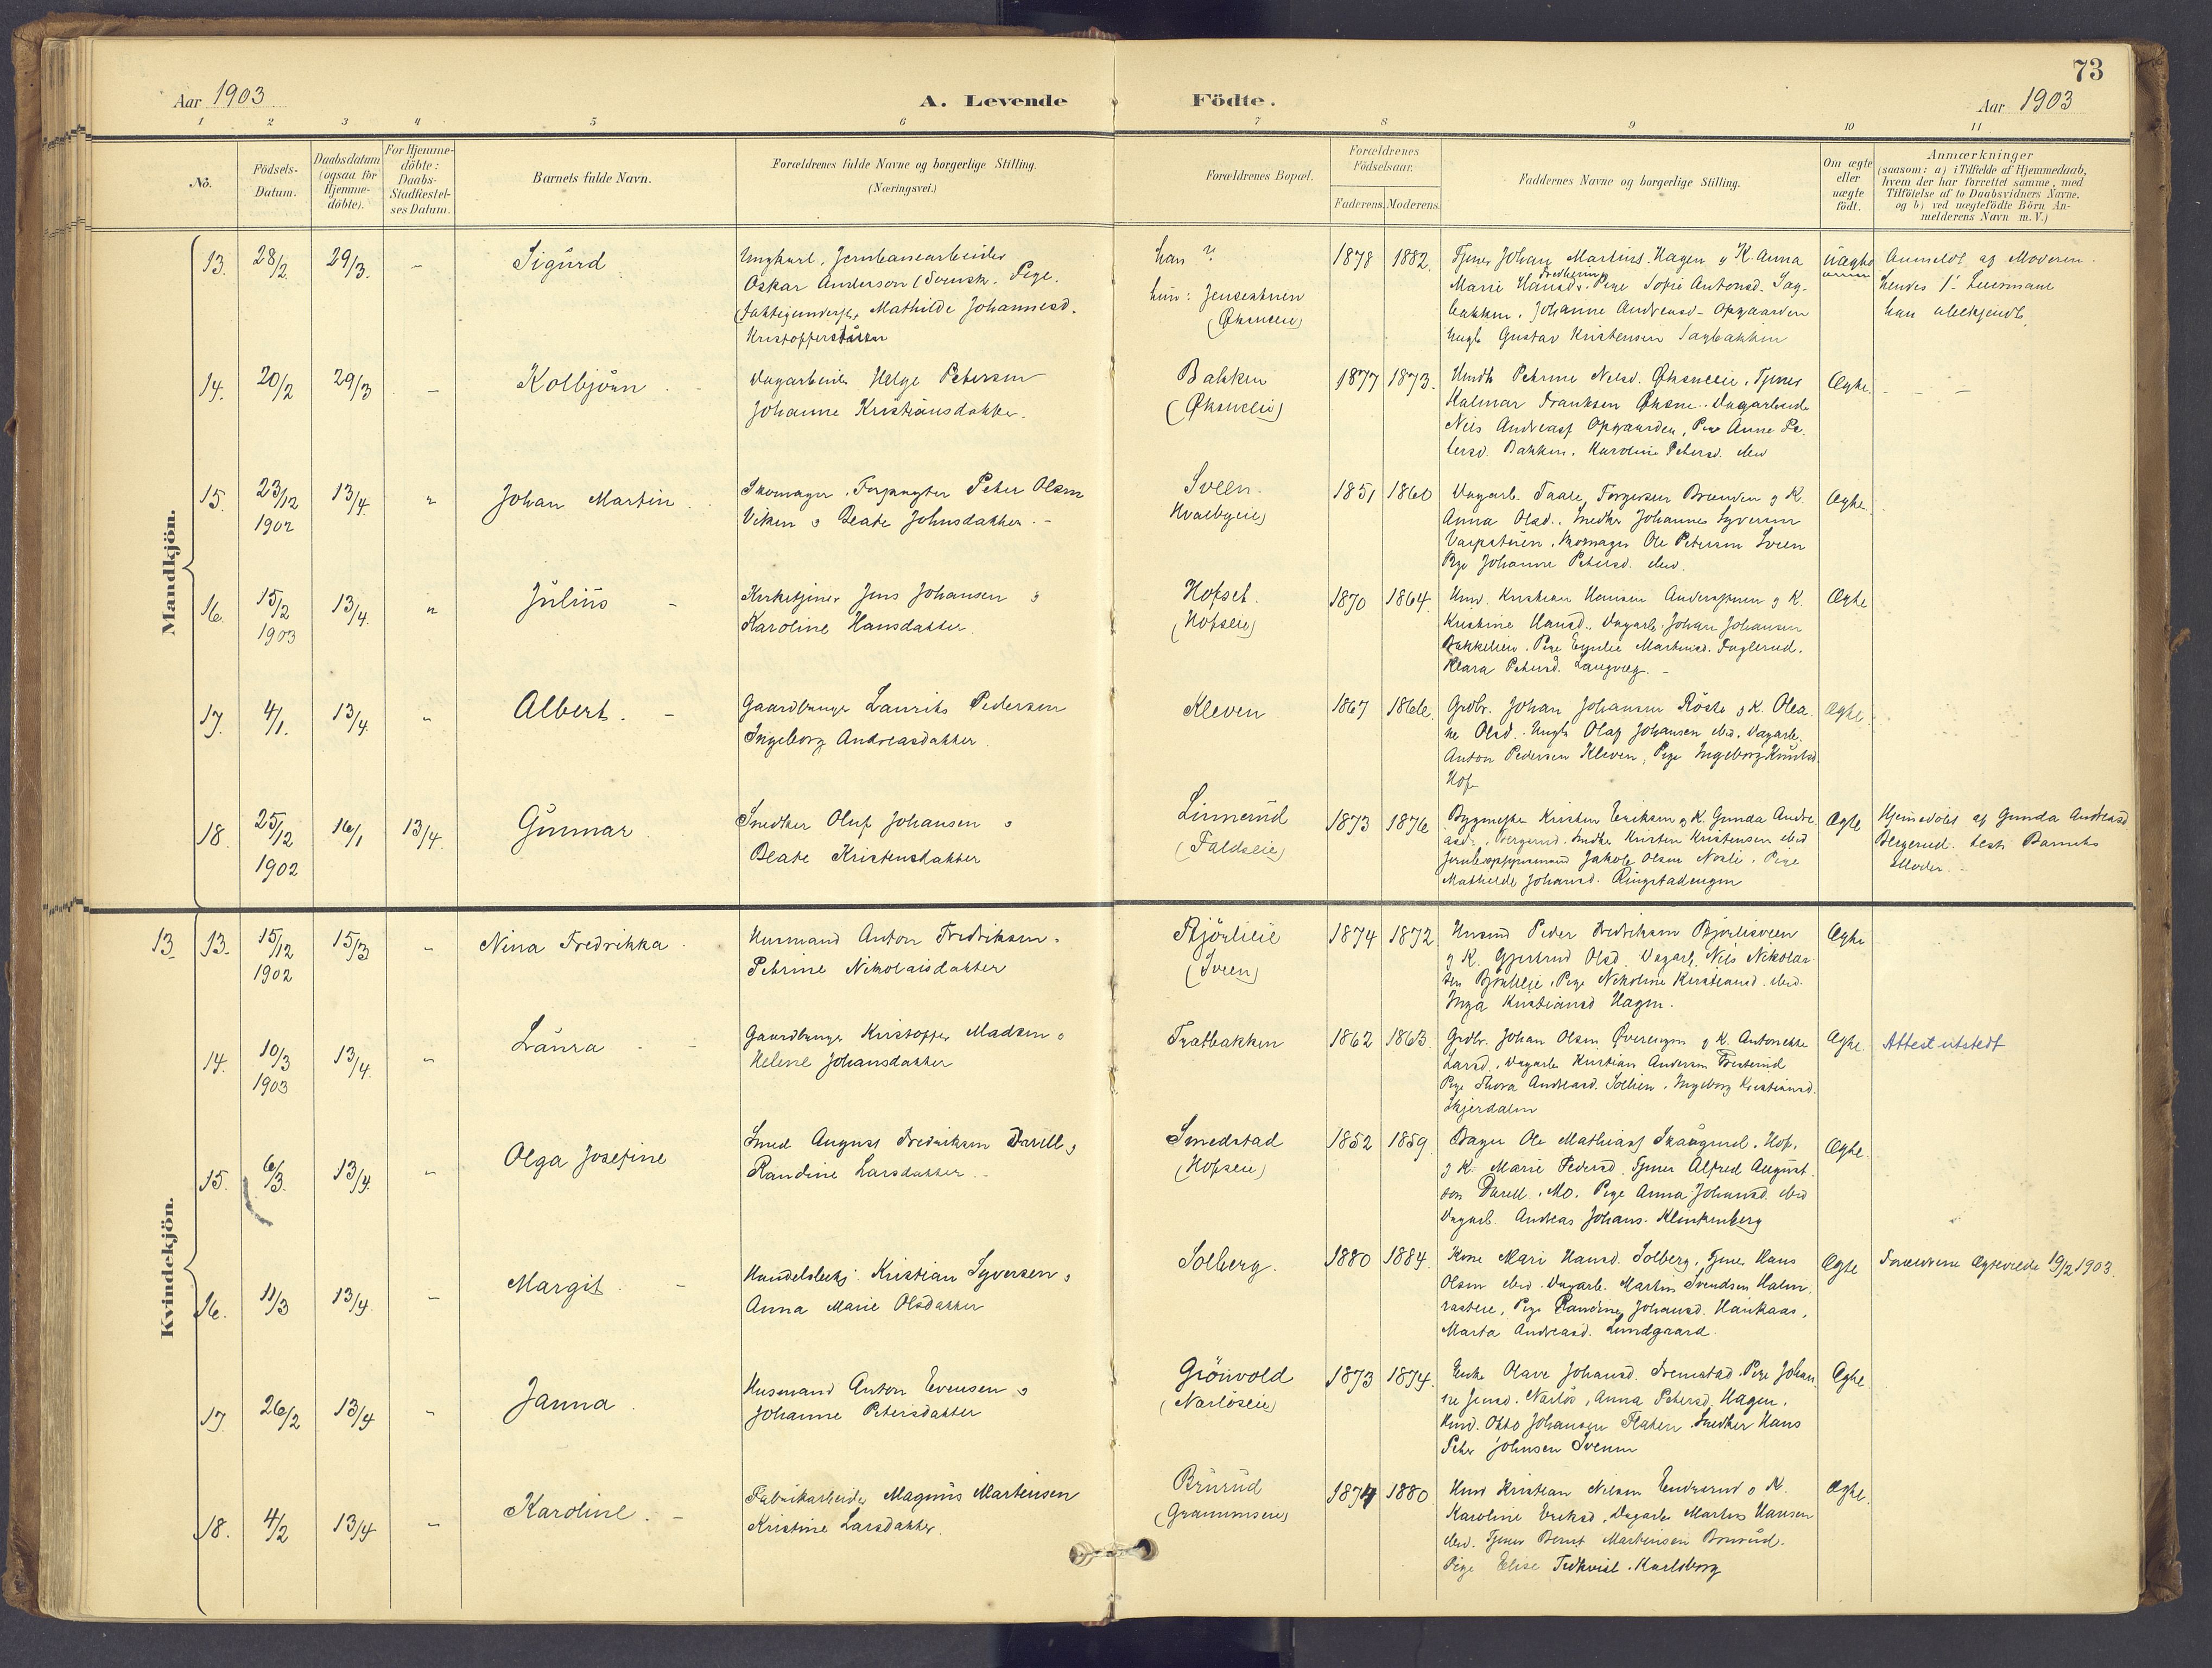 73
Aar 1903
A. Levende Födte.
Aar 1903
1 2 3 4 5 6 7 8 9 10 11
No.
Födsels-
Datum.
Daabsdatum
(ogsaa for
Hjemme-
döbte).
For Hjemme-
döbte:
Daabs-
Stadfæstel-
ses Datum.
Barnets fulde Navn.
Forældrenes fulde Navne og borgerlige Stilling.
(Næringsvei.)
Forældrenes Bopæl.
Forældrenes
Födselsaar.
Faderens. Moderens.
Faddernes Navne og borgerlige Stilling.
Om ægte
eller
uægte
födt.
Anmærkninger
(saasom: a) i Tilfælde af Hjemmedaab,
hvem der har forrettet samme, med
Tilföielse af to Daabsvidners Navne,
og b) ved uægtefödte Börn An-
melderens Navn m. V.)
Mandkjön.
13. 28/2 29/3. - Sigurd
Ungkarl, Jernbanearbeider
Oskar Anderson (Svensk. Pige.
Mathilde Johannesd.
Kristofferstuen
han ?
hun: Jensestuen
1878 1882.
Tjener Johan Martins. Hagen g K. Anna
Marie Hansd. Pige Sofie Antonsd. Sag-
bakken. Johanne Andreasd. Opgaarden
Ungk Gustav Kristensen Sagbakken
uægte
Anmeldt af Moderen.
hendes 1ste Leiermaal
14. 20/2 29/3 - Kolbjörn
Dagarbeider Helge Petersen
Johanne Kristiansdatter.
Bakken
1877 1873.
Nilsd.
Halmar Frantsen
Nils Andreasf Opgaarden, Pige Anne Pe-
tersd. Bakken. Karoline Petersd. ibid
Ægte. - -
15. 23/12 13/4. " Johan Martin
1902
Skomager, Forpagter Peter Olsen
Viken o Beate Johnsdatter. -
Sveen.
1851 1860
Dagarb. Taale Torgersen Braaten g K.
Anna Olsd. Snedker Johannes Syversen
Skomager Ole Petersen Sveen
Pige Johanne Petersd. ibid.
Ægte.
16. 15/2 13/4. " Julius -
1903
Kirketjener Jens Johansen o
Karoline Hansdatter
Hofset.
(Hofseie)
1870 1864.
Kristian Hansen g K.
Kristine Hansd. Dagarb. Johan Johansen
Pige Emilie Martinsd. Fuglerud.
Klara Petersd. Langvæg. -
Ægte
17. 4/1. 13/4. " Albert. -
Gaardbruger Laurits Pedersen
Ingeborg Andreasdatter.
Kleven
1867 1866.
Grdbr. Johan Johansen Röste g K. Olea-
ne Olsd. Ungk Olaf Johansen ibid. Dagarb.
Anton Pedersen Kleven, Pige Ingeborg Knutsd.
Hof
Ægte.
18. 25/12 16/1 13/4. Gunnar.
1902
Snedker Oluf Johansen o
Beate Kristensdatter
Linnerud
(Faldseie)
1873 1876
Bygmester Kristen Eriksen g K. Gunda Andre-
asd. Bergerud. Snedker Kristen Kristensen ibid
Jakob Olsen Noslie, Pige
Mathilde Johansd. Ringstadengen
Ægte
Hjemedöbt af Gunda Andreasd
Bergerud. test. Barnets
Moder. -
Kvindekjön.
13 13. 15/12 15/3 " Nina Fredrikka.
1902
Husmand Anton Fredriksen o
Petrine Nikolaisdatter
Björlieie
(Sveen)
1874 1872
Husmd Peder Fredriksen Björliesveen
g K. Gjertrud Olsd. Dagarb. Nils Nikolai-
sen Björlieie, Pige Nikoline Kristiansd. ibid.
Inga Kristiansd Hagen.
Ægte
14. 10/3 13/4. " Laura - -
1903
Gaardbruger Kristoffer Madsen o
Helene Johansdatter
Tratbakken
1862 1863.
Grdbr. Johan Olsen Överengen g K. Antonette
Larsd. Dagarb. Kristian Andersen
Pige Thora Andreasd. Sollien, Ingeborg Kristiansd.
Skjerdalen
Ægte.
Attest utstedt
15. 6/3. 13/4. " Olga Josefine
Smed August Fredriksen Darell o
Randine Larsdatter. -
Smedstad
(Hofseie)
1852 1859
Bager Ole Mathiasf Skaugerud. Hof,
g K. Marie Pedersd. Tjener Alfred August-
son Darell. Mo. Pige Anna Johansd. ibid
Dagarb. Andreas Johans. Klinkenberg
Ægte.
16. 11/3 13/4. - Margit. -
Handelsbetj. Kristian Syversen o
Anna Marie Olsdatter
Solberg.
1880 1884.
Kone Mari Hansd. Solberg, Tjener Hans
Olsen ibid. Dagarb. Martin Svendsen Halm-
rasteie, Pige Randine Johansd. Haukaas,
Marta Andreasd. Lundgaard.
Ægte
Forældrene Ægteviede 19/2 1903.
17. 26/2 13/4 " Janna.
Husmand Anton Evensen o
Johanne Petersdatter
Grönvold
(Narlöseie)
1873 1874.
Enke Olave Johansd. Pige Johan-
ne Jensd. Narlös, Anna Petersd. Hagen.
Husmd. Otto Johansen Flaten Snedker Hans
Peter Johnsen Sveum
Ægte
18. 4/2 13/4 - Karoline. -
Fabrikarbeider Magnus Martinsen
Kristine Larsdatter.
Brurud
1874 1880
Kristian Nilsen Endrerud o K.
Karoline Eriksd. Dagarb. Martin Hansen
ibid. Tjener Bernt Martinsen Brurud.
Pige Elise Tidkvist. Karlsborg
Ægte.